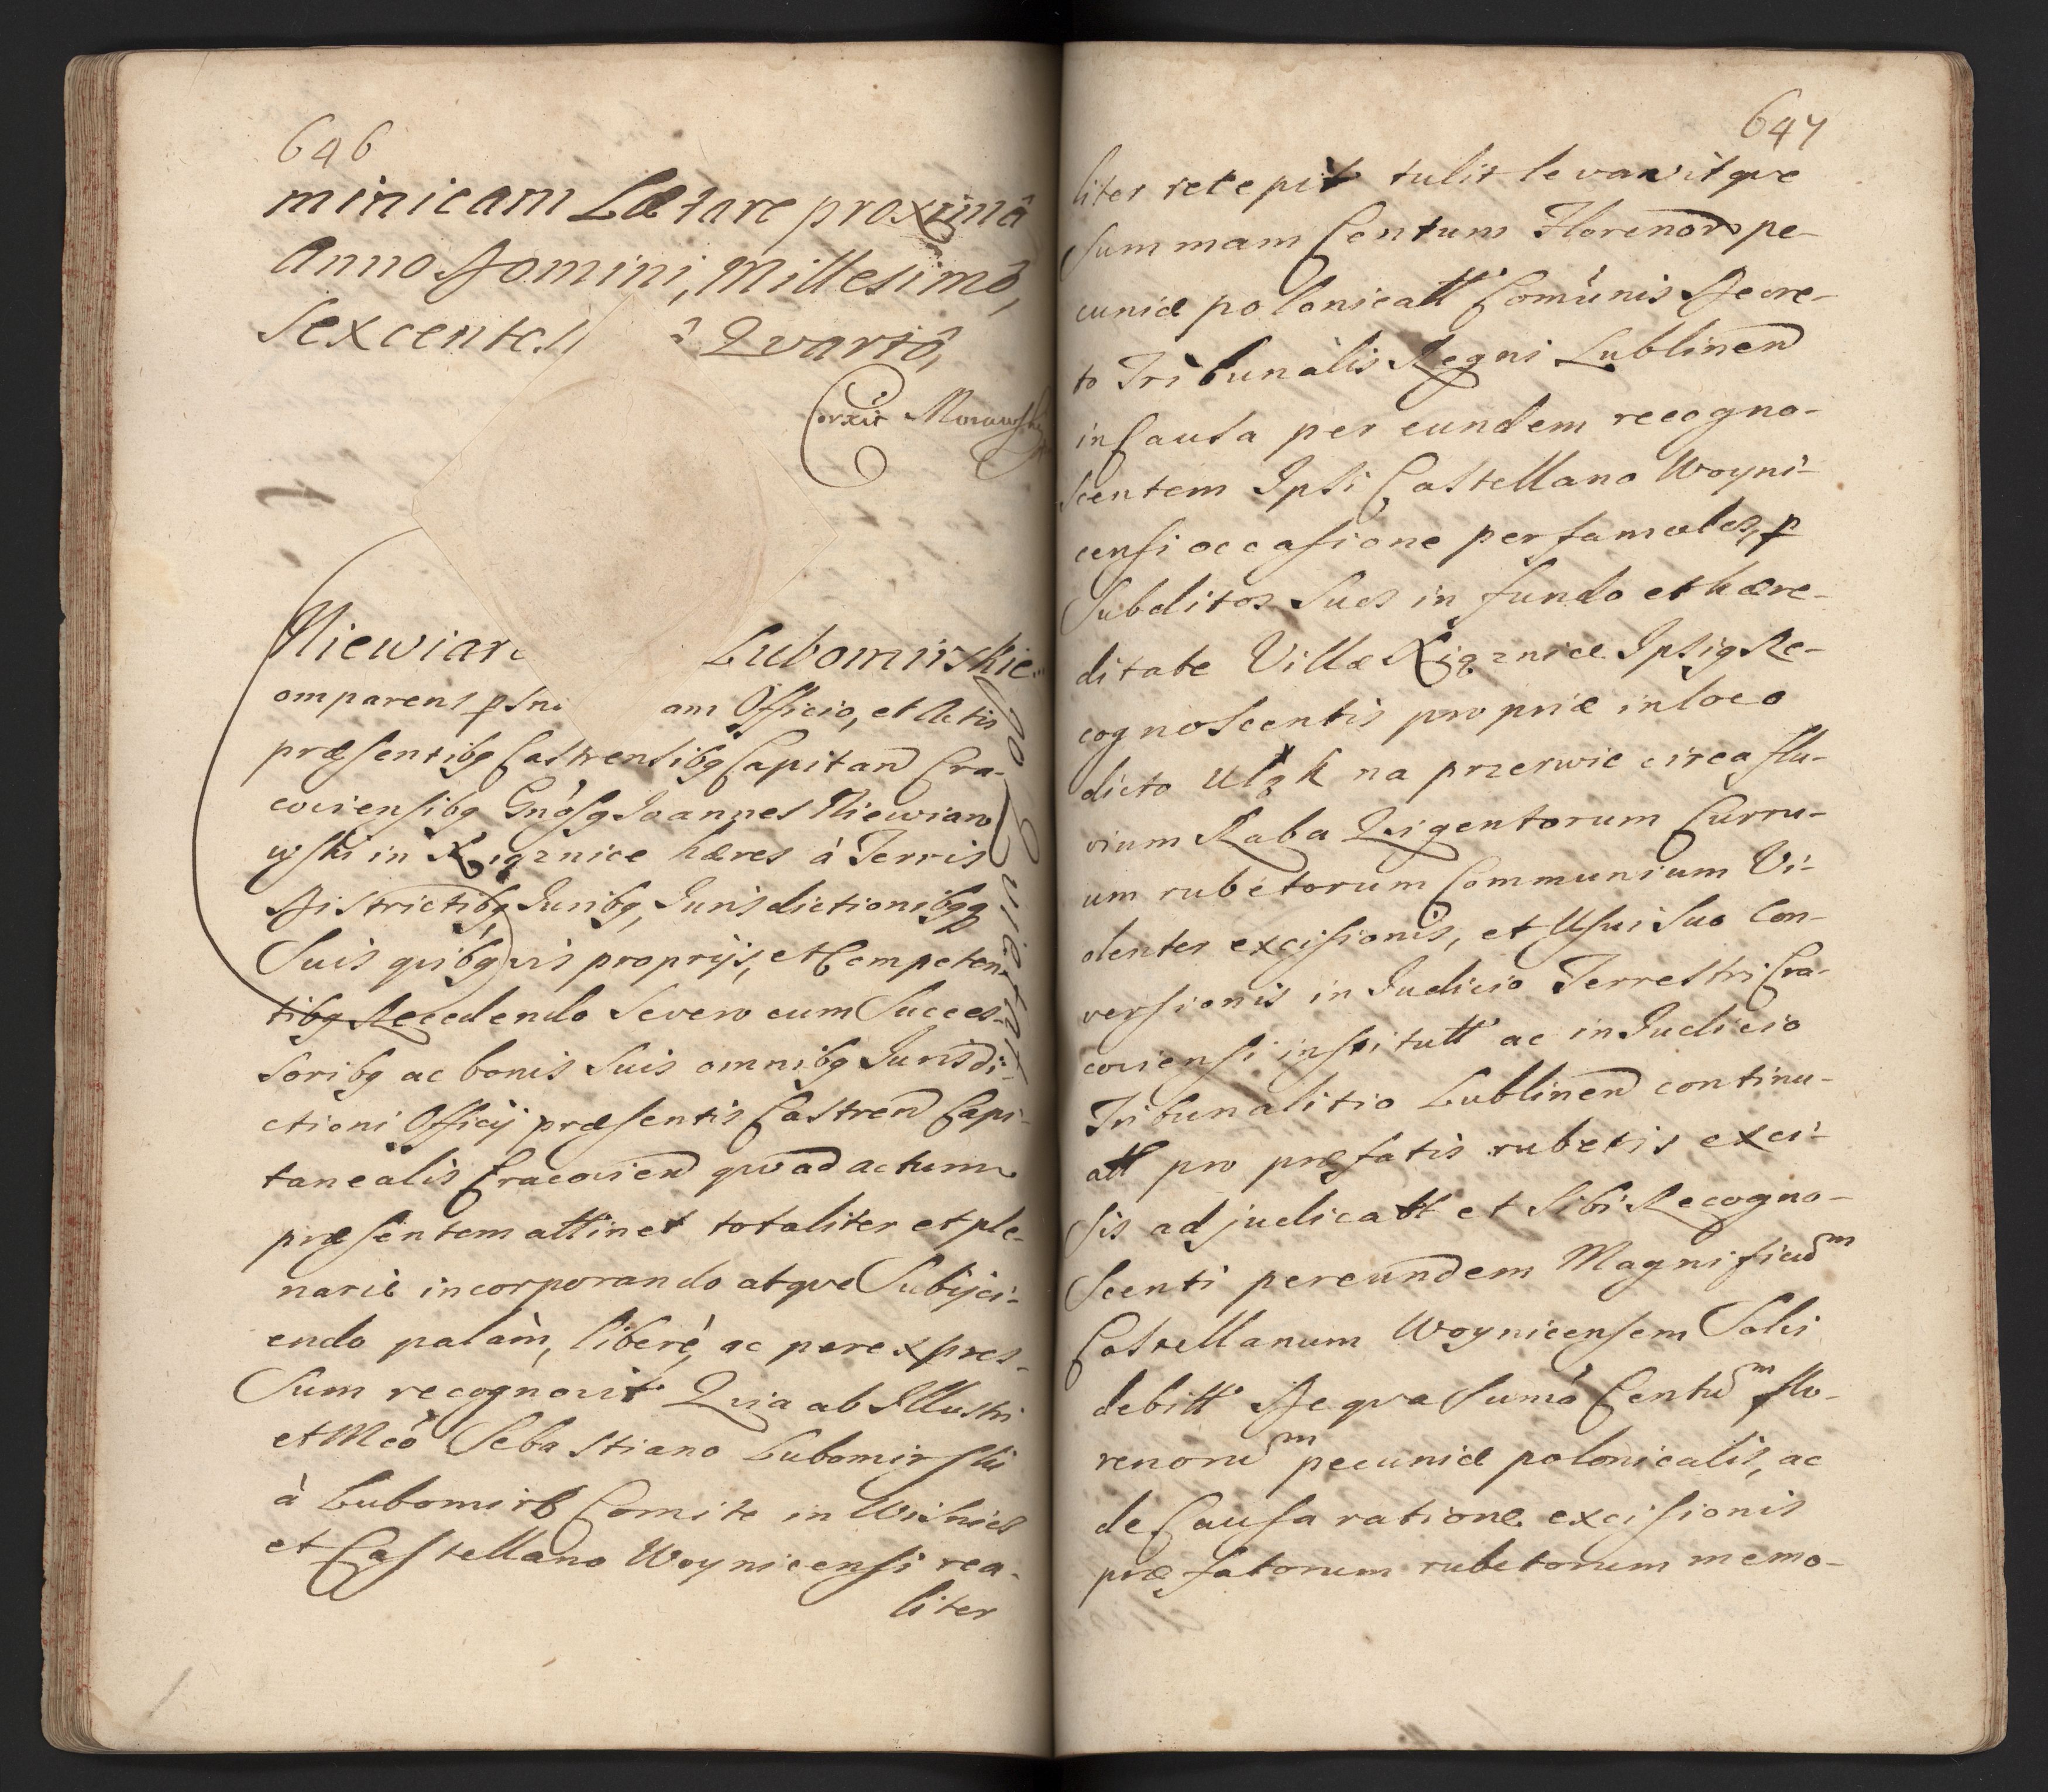 646
minicam Lætare proximâ
Anno Domini, Millesimô,
Sexcentes ô Qvartô,
Corxit Morawski
Niewiar Lubomirskie
omparens psn am Officio, et Actis
præsentibq Castrensibq Capitan Cra-
coviensibq Gnôsq Joannes Niewiaro
wski in Xiąznice hæres à Terris
Districtibq, Juribq, Jurisdictionibqq
Suis qvibqvis proprijs, et Competen-
tibq Recedendo Severo cum Succes-
soribq ac bonis suis omnibq Jurisdi-
ctioni Officij præsentis Castren Capi-
tanealis Cracovien qvo ad actum
præsentem attinet totaliter et ple-
nariè incorporando atqve Subijci-
endo palàm, liberè, ac per expres-
sum recognovit Qvia ab Illustri
et Mcô Sebastiano Lubomirski
à Lubomirz Comite in Wisnicz
et Castellano Woynicensi rea-
liter
go Qvietat
647
liter recepit tulit levavitqve
summam Centum Florenor pe-
cuniæ polonicatt Comunis Decre-
to Tribunalis Regni Lublinen
in Causa per eundem recogno-
scentem Ipsi Castellano Woyni-
censi occasione per famulos, p
Subditos Suos in fundo et hære-
ditate Villæ Xiąznice Ipsiq Re-
cognoscentis propriæ in loco
dicto Ulgk na przerwie circa flu-
vium Raba Qvigentorum Curru-
um rubetorum Communium Vi-
olenter excisionis, et Usui Suo Con-
versionis in Judicio Terrestri Cra-
coviensi institutt ac in Judicio
Tribunalitio Lublinen continu-
att pro præfatis rubetis exci-
sis adjudicatt et Sibi Recogno-
scenti per eundem Magnificum
Castellanum Woynicensem Solvi
debitt De qva Sumâ Centum flo-
renorum pecuniæ polonicalis, ac
de Causa ratione excisionis
præfatorum rubetorum memo-